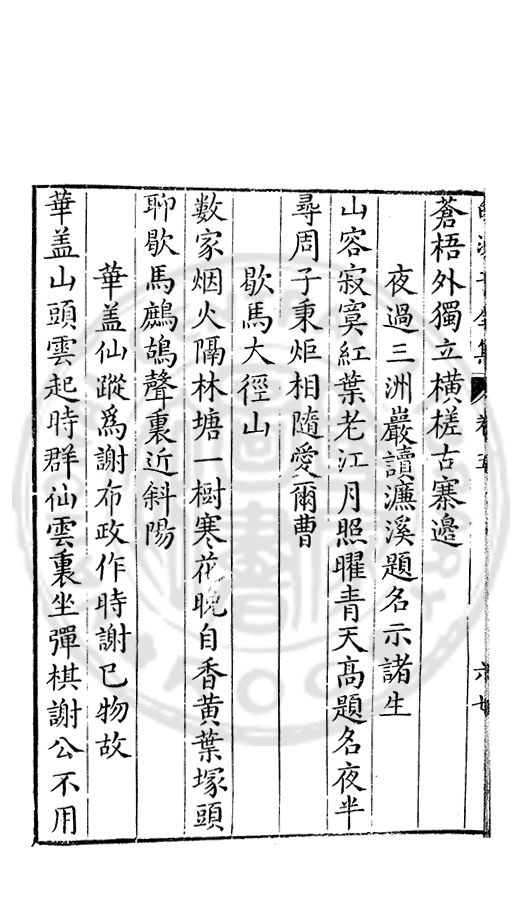 蒼梧外獨立橫槎古寨邊
夜過三洲巖讀濂溪題名示諸生
山容寂寞紅葉老江月照曜青天高題名夜半
尋周子秉炬相隨愛爾曹
歇馬大徑山
數家烟火隔林塘一樹寒花晚自香黄葉塚頭
聊歇馬鷓鴣聲裏近斜陽
華盖仙蹤爲謝布政作時謝已物故
華盖山頭雲起時群仙雲裏坐彈棋謝公不用